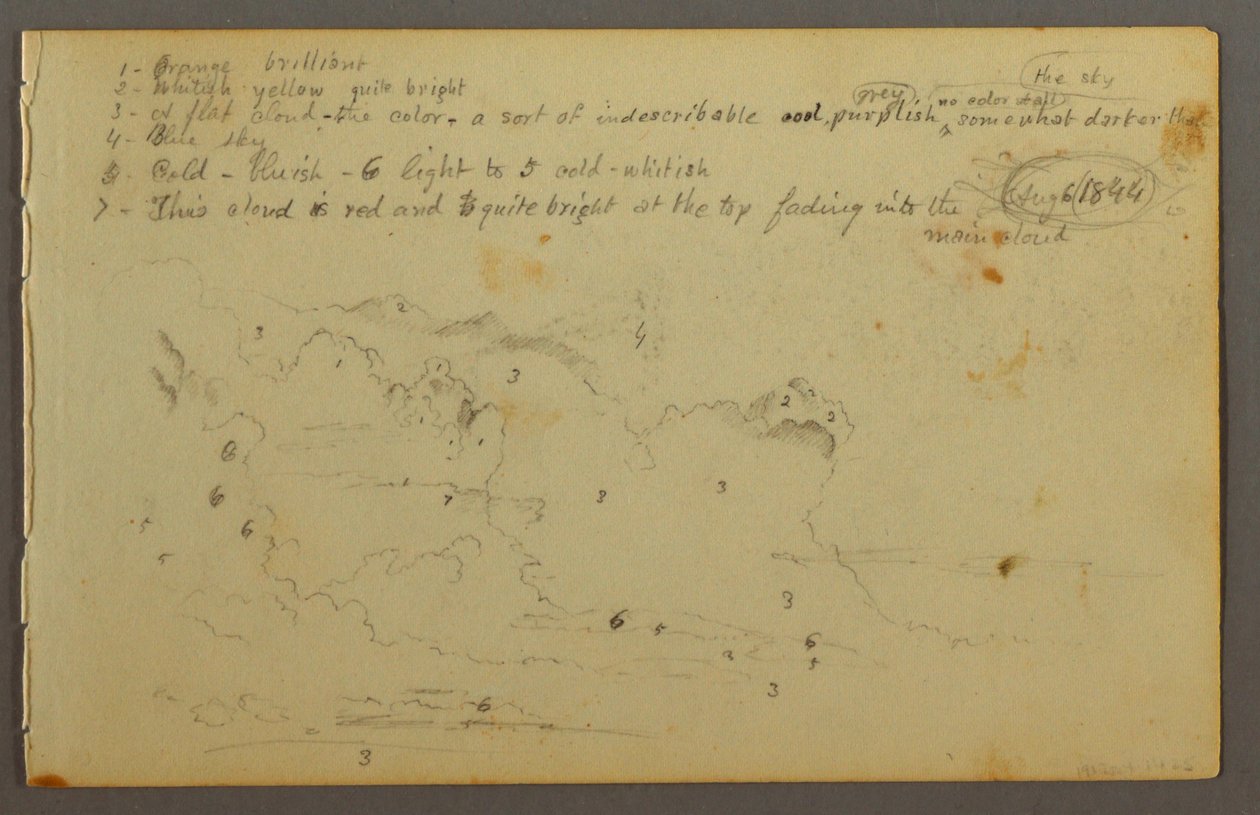 1 - Orange brilliant
2 - Whitish yellow quite bright
the sky
grey
no color at all
3 - A flat cloud - the color - a sort of indescribable cool, purplish, somewhat darker than
4 - Blue sky
5 - Cold - bluish - 6 light to 5 cold - whitish
Aug 6 1844
7 - This cloud is red and quite bright at the top fading into the
main cloud
2
3
4
1
1
3
2
2
1
1
6
3
3
7
6
5
6
5
3
6
5
6
3
5
3
6
3